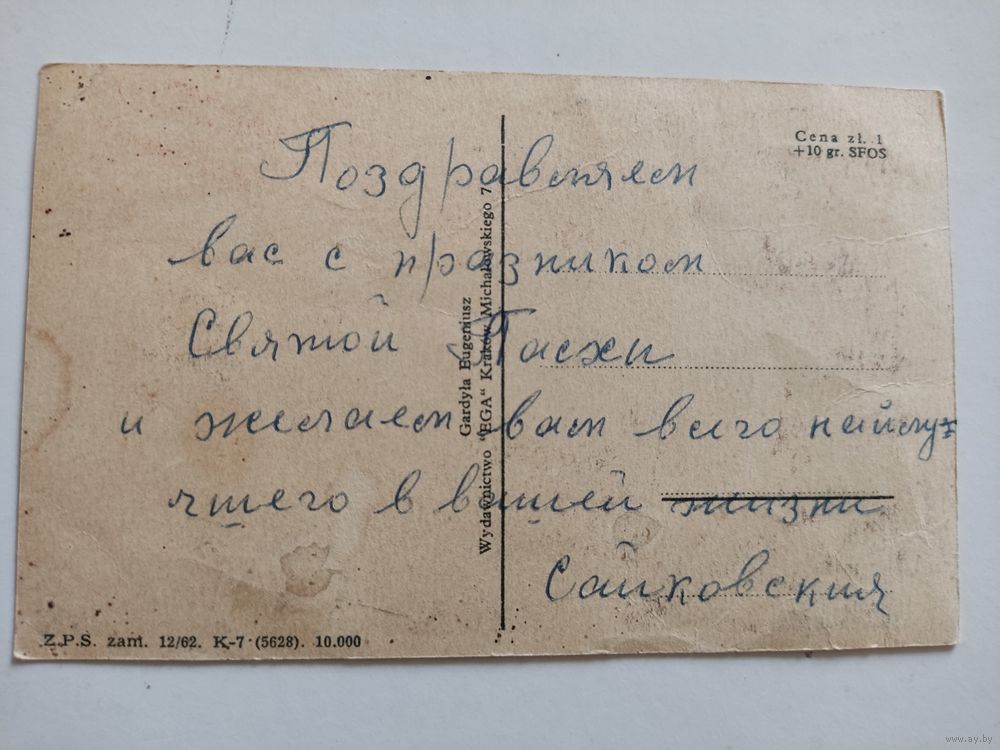 Cena zł. 1
+10 gr. SFOS
Поздравляем
вас с празником
Святой Пасхи
и желаем вам всего найлу-
чшего в вашей жизни
Сайковския
Gardyła Eugeniusz
Wydawnictwo "EGA" Kraków Michałowskiego 7
Z.P.S. zam. 12/62. K-7 (5628). 10.000
www.ay.by